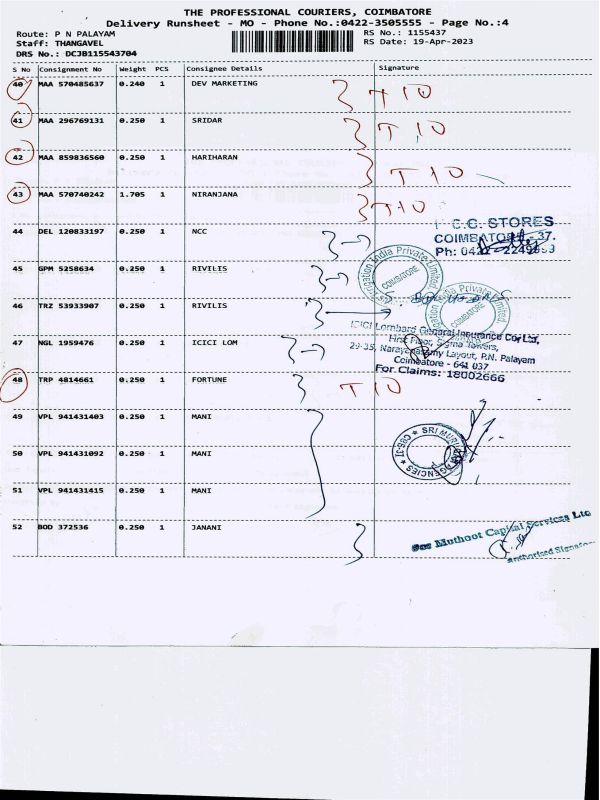 THE PROFESSIONAL COURIERS, COIMBATORE
Delivery Runsheet - MO - Phone No.:0422-3505555 - Page No.:4
Route: P N PALAYAM RS No.: 1155437
Staff: THANGAVEL RS Date: 19-Apr-2023
DRS No.: DCJB115543704
S No Consignment No Weight PCS Consignee Details Signature
40 MAA 570485637 0.240 1 DEV MARKETING TIO
41 MAA 296769131 0.250 1 SRIDAR TIO
42 MAA 859836560 0.250 1 HARIHARAN TIO
43 MAA 570740242 1.705 1 NIRANJANA TIO
44 DEL 120833197 0.250 1 NCC
C.C. STORES
COIMBATORE - 37.
Ph: 0422 - 2249553
45 GPM 5258634 0.250 1 RIVILIS
India Private Limited
COIMBATORE
46 TRZ 53933907 0.250 1 RIVILIS
India Private Limited
COIMBATORE
47 NGL 1959476 0.250 1 ICICI LOM
ICICI Lombard General Insurance Co. Ltd,
First Floor, Sigma Towers,
29-35, Narayanasamy Layout, P.N. Palayam
Coimbatore - 641 037
For Claims: 18002666
48 TRP 4814661 0.250 1 FORTUNE TIO
49 VPL 941431403 0.250 1 MANI
SRI MURUGAN AGENCIES
CBE-37
50 VPL 941431092 0.250 1 MANI
51 VPL 941431415 0.250 1 MANI
52 BOD 372536 0.250 1 JANANI
Muthoot Capital Services Ltd
Authorised Signatory